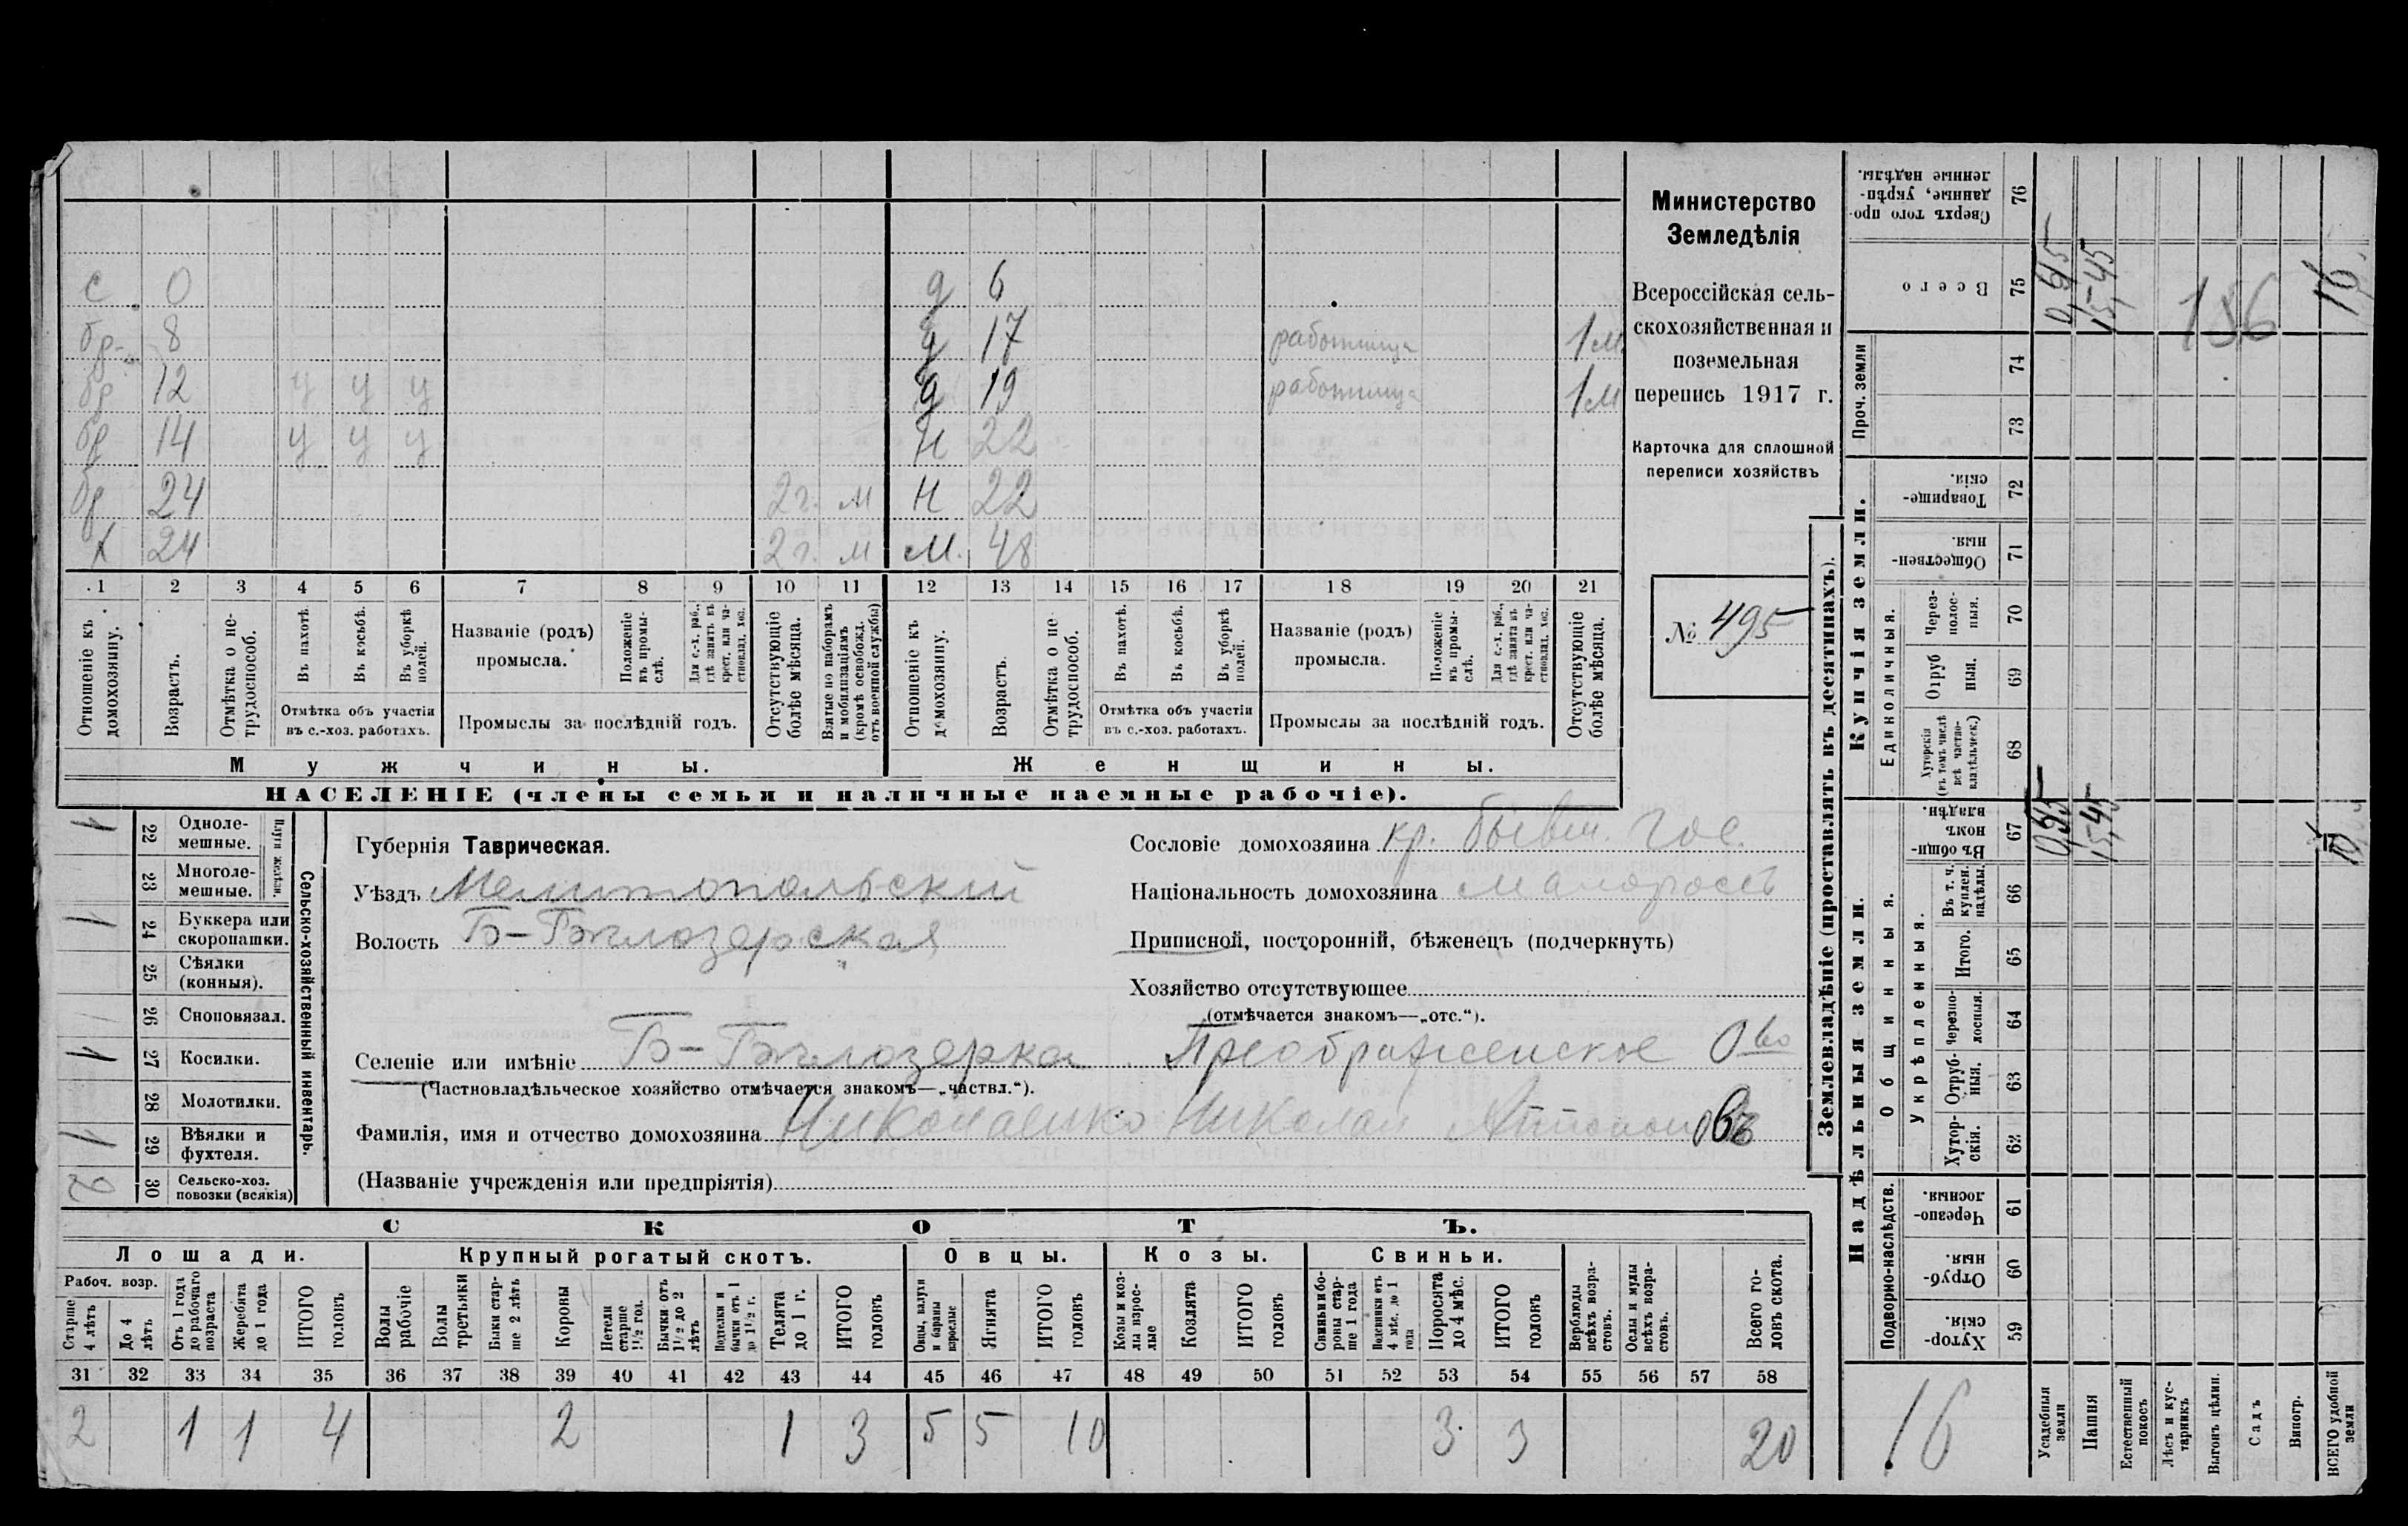 с 0 д 6
бр. 8 д 17 работница 1 м.
бр 12 у у у д 19 работница 1 м
бр 14 у у у Н 22
бр 24 2 г. м Н 22
х 24 2 г. м м. 48
1 2 3 4 5 6 7 8 9 10 11 12 13 14 15 16 17 18 19 20 21
Отношеніе къ домохозяину.
Возрастъ.
Отмѣтка о нетрудоспособ.
Въ пахотѣ.
Въ косьбѣ.
Въ уборкѣ полей.
Отмѣтка объ участіи
въ с.-хоз. работахъ.
Названіе (родъ)
промысла.
Положеніе въ промыслѣ.
Для с.-х. раб., гдѣ занятъ въ крест. или частновлад. хоз.
Промыслы за послѣдній годъ.
Отсутствующіе болѣе мѣсяца.
Взятые по наборамъ и мобилизаціямъ (кромѣ освобожд. отъ военной службы)
Отношеніе къ домохозяину.
Возрастъ.
Отмѣтка о нетрудоспособ.
Въ пахотѣ.
Въ косьбѣ.
Въ уборкѣ полей.
Отмѣтка объ участіи
въ с.-хоз. работахъ.
Названіе (родъ)
промысла.
Положеніе въ промыслѣ.
Для с.-х. раб., гдѣ занята въ крест. или частновлад. хоз.
Промыслы за послѣдній годъ.
Отсутствующіе болѣе мѣсяца.
Мужчины.
Женщины.
НАСЕЛЕНІЕ (члены семьи и наличные наемные рабочіе).
Министерство
Земледѣлія
Всероссійская сель-
скохозяйственная и
поземельная
перепись 1917 г.
Карточка для сплошной
переписи хозяйствъ
№ 495
Сельско-хозяйственный инвентарь.
1 22 Одноле-
мешные.
23 Многоле-
мешные.
1 24 Буккера или
скоропашки.
25 Сѣялки
(конныя).
26 Сноповязал.
1 27 Косилки.
28 Молотилки.
1 29 Вѣялки и
фухтеля.
2 30 Сельско-хоз.
повозки (всякія)
Губернія Таврическая.
Уѣздъ Мелитопольскій
Волость Б-Бѣлозерская
Сословіе домохозяина кр. бывш. гос.
Національность домохозяина малороссъ
Приписной, посторонній, бѣженецъ (подчеркнуть)
Хозяйство отсутствующее
(отмѣчается знакомъ—„отс.“).
Селеніе или имѣніе Б-Бѣлозерка Преображенское О-во
(Частновладѣльческое хозяйство отмѣчается знакомъ—„частвл.“).
Фамилія, имя и отчество домохозяина Николаенко Николай Антоновъ
(Названіе учрежденія или предпріятія)
СКОТЪ.
Лошади. Крупный рогатый скотъ. Овцы. Козы. Свиньи.
Рабоч. возр.
Старше 4 лѣтъ
До 4 лѣтъ
Отъ 1 года до рабочаго возраста
Жеребята до 1 года
ИТОГО головъ
Волы рабочіе
Волы третьяки
Быки старше 2 лѣтъ
Коровы
Нетели старше 1 1/2 год.
Бычки отъ 1 1/2 до 2 лѣтъ
Подтелки и бычки отъ 1 до 1 1/2 г.
Телята до 1 г.
ИТОГО головъ
Овцы, валухи и бараны взрослые
Ягнята
ИТОГО головъ
Козы и козлы взрослые
Козлята
ИТОГО головъ
Свиньи и бороны старше 1 года
Подсвинки отъ 4 мѣс. до 1 года
Поросята до 4 мѣс.
ИТОГО головъ
Верблюды всѣхъ возрастовъ.
Ослы и мулы всѣхъ возрастовъ.
Всего головъ скота.
31 32 33 34 35 36 37 38 39 40 41 42 43 44 45 46 47 48 49 50 51 52 53 54 55 56 57 58
2 1 1 4 2 1 3 5 5 10 3 3 20
Землевладѣніе (проставлять въ десятинахъ).
Сверхъ того проданные, укрѣпленные надѣлы. 76
Всего 75 0,55 15,45 156 16
Проч. земли
74
73
Купчія земли.
Товарищескія. 72
Общественныя. 71
Единоличныя.
Черезполосныя. 70
Отрубныя. 69
Хуторскія (въ томъ числѣ всѣ частновладѣльческ.) 68
Надѣльныя земли.
Общинныя.
Въ общинномъ владѣн. 67 0,55 15,45 16
Укрѣпленныя.
Въ т. ч. куплен. надѣлы. 66
Итого. 65
Черезполосныя. 64
Отрубныя. 63
Хуторскія. 62
Подворно-наслѣдств.
Черезполосныя. 61
Отрубныя. 60
Хуторскія. 59
16
Усадебныя земли
Пашня
Естественный покосъ
Лѣсъ и кустарникъ
Выгонъ цѣлин.
Садъ
Виногр.
ВСЕГО удобной земли